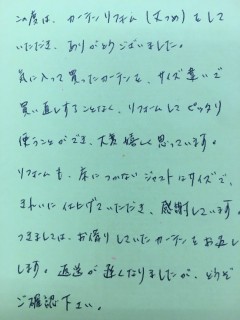 この度は、カーテンリフォーム（丈つめ）をして
いただき、ありがとうございました。
気に入って買ったカーテンを、サイズ違いで
買い直しすることなく、リフォームして ピッタリ
使うことができ、大変嬉しく思っています。
リフォームも、床につかないジャストなサイズで、
きれいに仕上げていただき、感謝しています。
つきましては、お借りしていたカーテンをお返し
します。返送が遅くなりましたが、どうぞ
ご確認下さい。